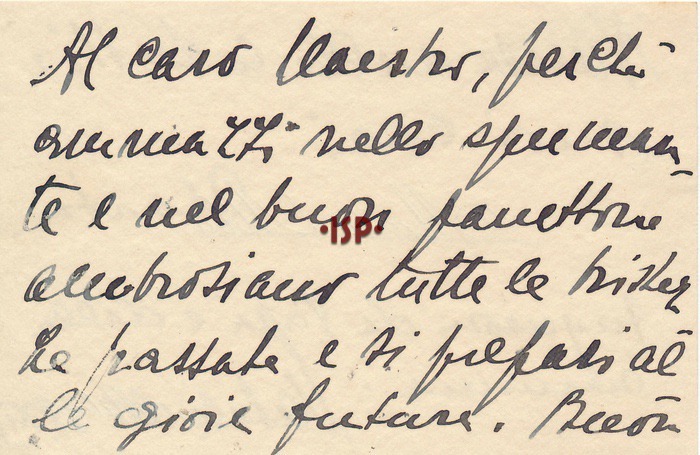 Al caro Maestro, perché
ammazzi nello spuman
te e nel buon panettone
·ISP·
ambrosiano tutte le tristez
ze passate e si prepari al
le gioie future. Buon